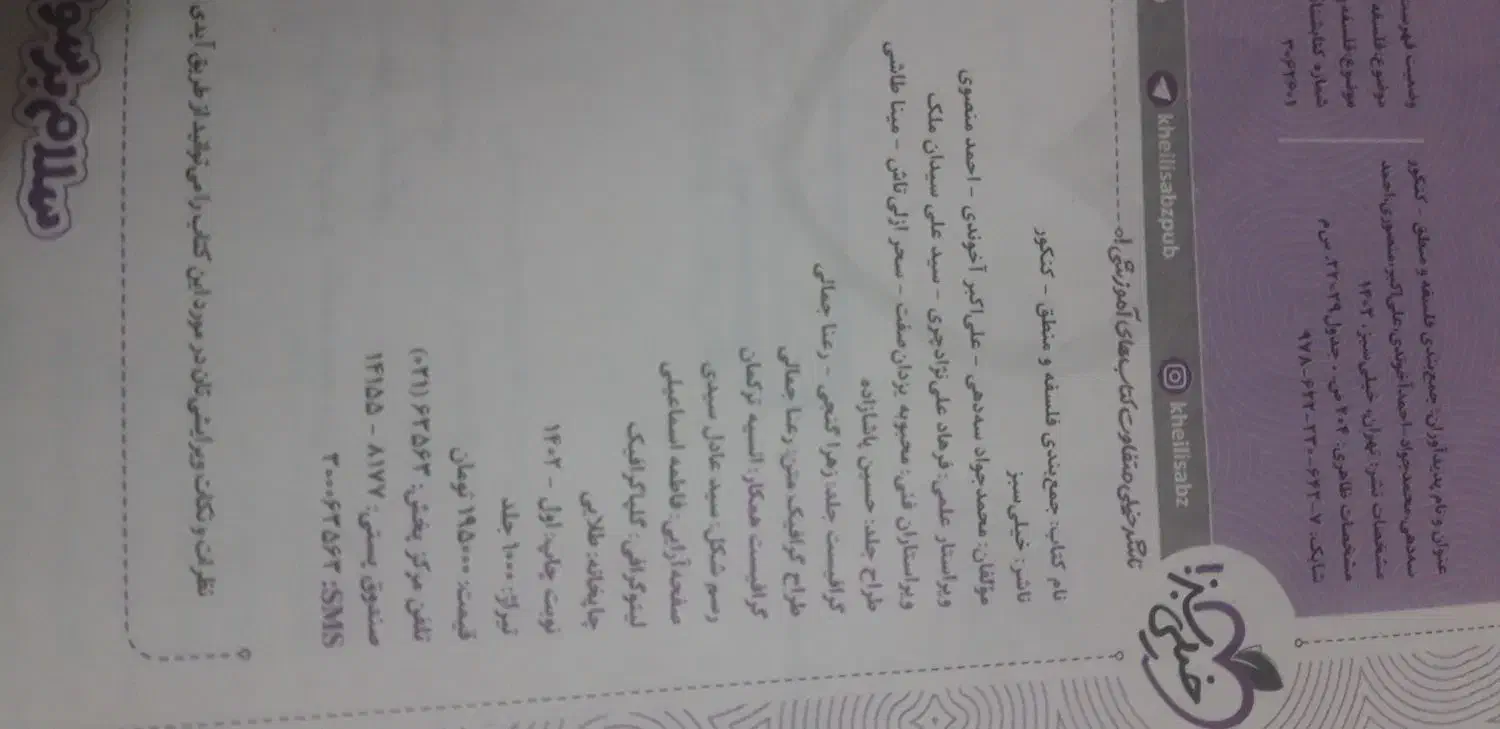 وضعیت فهرست
موضوع: فلسفه
موضوع: فلسفه
شماره کتابشنا
عنوان و نام پدیدآوران: جمع‌بندی فلسفه و منطق - کنکور
سه‌دهی، محمدجواد، احمد؛ آخوندی، علی‌اکبر؛ منصوری، احمد
مشخصات نشر: تهران، خیلی سبز، ۱۴۰۲
مشخصات ظاهری: ۲۰۴ ص، جدول ۲۹×۲۲ س م
شابک:
kheilisabzpub
kheilisabz
خیلی سبز!
ناشر خیلی متفاوت کتاب‌های آموزشی!
نام کتاب: جمع‌بندی فلسفه و منطق - کنکور
ناشر: خیلی سبز
مؤلفان: محمدجواد سه‌دهی - علی‌اکبر آخوندی - احمد منصوری
ویراستار علمی: فرهاد علی‌نژاد چری - سید علی سیدان ملک
ویراستاران فنی: محبوبه یزدان صفت - سحر ازلی تاش - مینا طاشی
طراح جلد: حسین پاشازاده
گرافیست جلد: زهرا گنجی - رعنا جمالی
طراح گرافیک متن: رعنا جمالی
گرافیست همکار: انسیه ترکمان
رسم شکل: سید عادل سیدی
صفحه‌آرایی: فاطمه اسماعیلی
لیتوگرافی: گلپا گرافیک
چاپخانه: طلایی
نوبت چاپ: اول - ۱۴۰۲
تیراژ: ۱۰۰۰ جلد
قیمت: ۱۹۵۰۰۰ تومان
تلفن مرکز پخش: ۶۳۵۶۳ (۰۲۱)
صندوق پستی: ۸۱۷۷ - ۱۴۱۵۵
SMS: ۳۰۰۰۶۳۵۶۳
نظرات و نکات ویرایشی‌تان در مورد این کتاب را می‌توانید از طریق آیدی
سلام بر سو